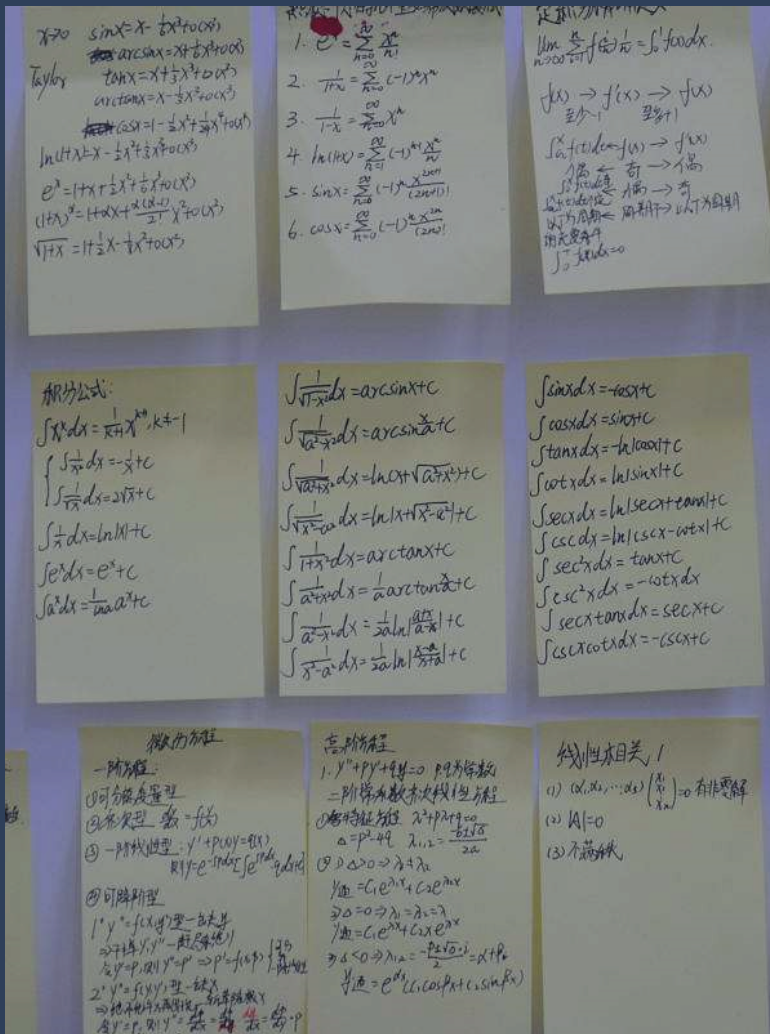 x→0 sinx=x-⅙x³+o(x³)
arcsinx=x+⅙x³+o(x³)
Taylor tanx=x+⅓x³+o(x³)
arctanx=x-⅓x³+o(x³)
cosx=1-½x²+1/24x⁴+o(x⁴)
ln(1+x)=x-½x²+⅓x³+o(x³)
eˣ=1+x+½x²+⅙x³+o(x³)
(1+x)^α=1+αx+α(α-1)/2! x²+o(x²)
√(1+x)=1+½x-⅛x²+o(x²)
1. eˣ=∑(n=0,∞) xⁿ/n!
2. 1/(1+x)=∑(n=0,∞)(-1)ⁿxⁿ
3. 1/(1-x)=∑(n=0,∞)xⁿ
4. ln(1+x)=∑(n=1,∞)(-1)ⁿ⁻¹xⁿ/n
5. sinx=∑(n=0,∞)(-1)ⁿx²ⁿ⁺¹/(2n+1)!
6. cosx=∑(n=0,∞)(-1)ⁿx²ⁿ/(2n)!
lim(n→∞)∑(i=1,n)f(i/n)1/n=∫₀¹f(x)dx.
f(x)→f'(x)→f(x)
至少-1 至多+1
∫ₐˣf(t)dt←f(x)→f'(x)
偶←奇→偶
←偶→奇
以T为周期←周期T→以T为周期
的充要条件
∫₀ᵀf(x)dx=0
积分公式:
∫xᵏdx=1/(k+1) xᵏ⁺¹,k≠-1
∫1/x²dx=-1/x+c
∫1/√x dx=2√x+c
∫1/x dx=ln|x|+c
∫eˣdx=eˣ+c
∫aˣdx=1/lna aˣ+c
∫1/√(1-x²)dx=arcsinx+c
∫1/√(a²-x²)dx=arcsin x/a+c
∫1/√(a²+x²)dx=ln(x+√(a²+x²))+c
∫1/√(x²-a²)dx=ln|x+√(x²-a²)|+c
∫1/(1+x²)dx=arctanx+c
∫1/(a²+x²)dx=1/a arctan x/a+c
∫1/(a²-x²)dx=1/2a ln|(a+x)/(a-x)|+c
∫1/(x²-a²)dx=1/2a ln|(x-a)/(x+a)|+c
∫sinxdx=-cosx+c
∫cosxdx=sinx+c
∫tanxdx=-ln|cosx|+c
∫cotxdx=ln|sinx|+c
∫secxdx=ln|secx+tanx|+c
∫cscdx=ln|cscx-cotx|+c
∫sec²xdx=tanx+c
∫csc²xdx=-cotxdx
∫secxtanxdx=secx+c
∫cscxcotxdx=-cscx+c
微分方程
一阶方程:
①可分离变量型
②齐次型
③一阶线性型:y'+p(x)y=q(x)
则y=e^(-∫pdx)[∫e^(∫pdx)·qdx+c]
④可降阶型
1° y''=f(x,y')型-缺y
令y'=p,则y''=p'⇒p'=f(x,p)
2° y''=f(y,y')型-缺x
令y'=p,则y''=dp/dx=dp/dy·dy/dx=dp/dy·p
高阶方程
1. y''+py'+qy=0 p,q为常数
二阶常系数齐次线性方程
①特征方程 λ²+pλ+q=0
Δ=p²-4q λ₁,₂=(-b±√Δ)/2a
②1) Δ>0⇒λ₁≠λ₂
y通=C₁e^(λ₁x)+C₂e^(λ₂x)
2) Δ=0⇒λ₁=λ₂=λ
y通=C₁e^(λx)+C₂xe^(λx)
3) Δ<0⇒λ₁,₂=(-p±√Δ·i)/2=α+βi
y通=e^(αx)(C₁cosβx+C₂sinβx)
线性相关
(1) (α₁,α₂,…,αs)=0有非零解
(2) |A|=0
(3) 不满秩